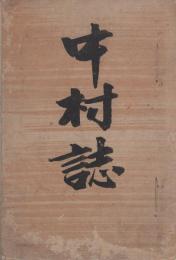 中村誌